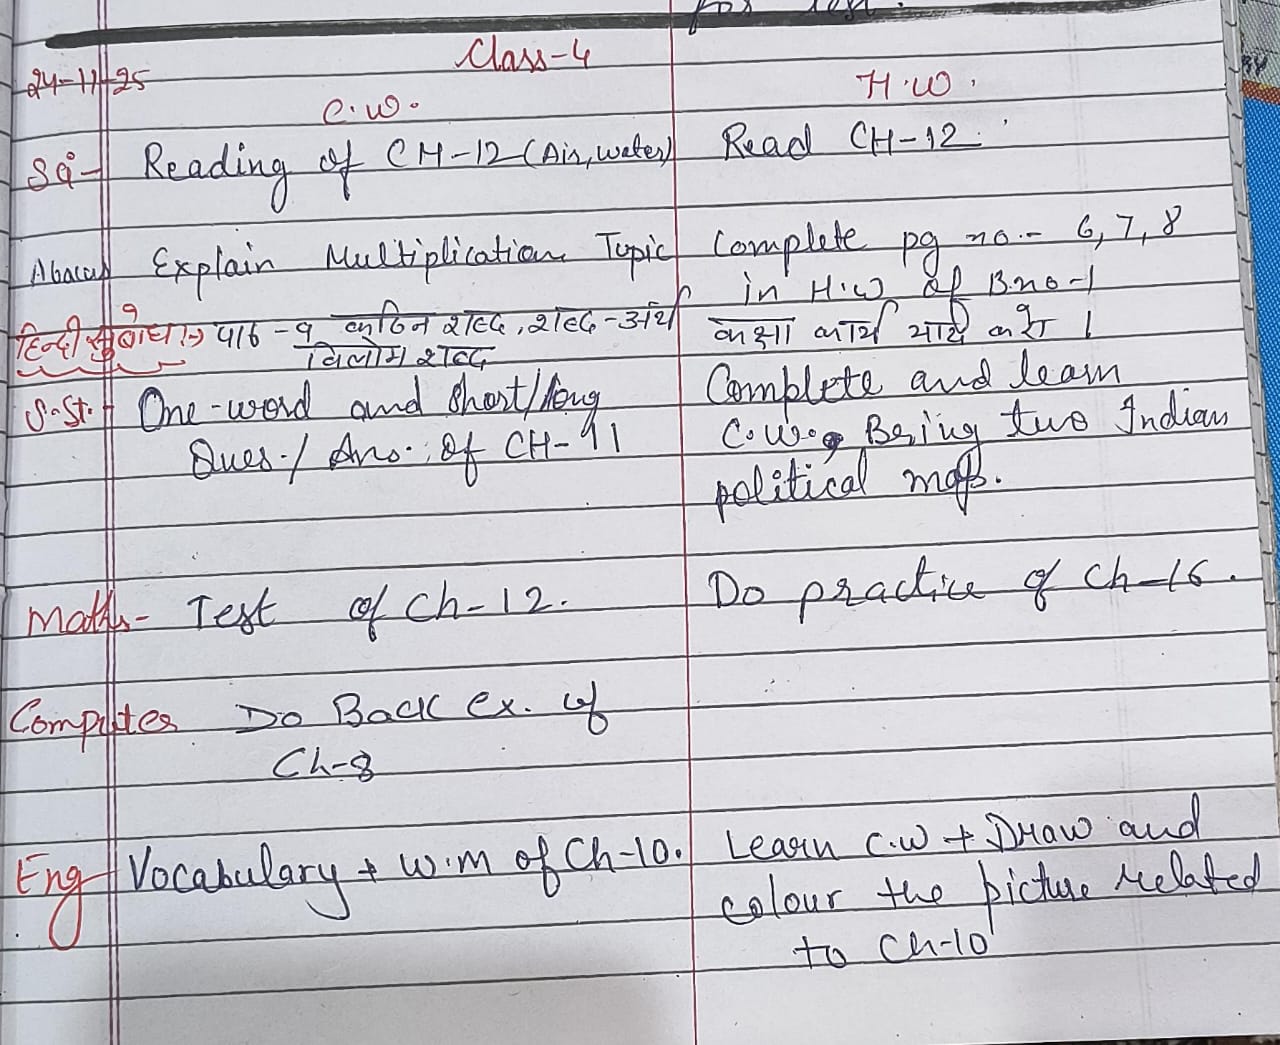 for Test.
Class-4
24-11-25
C.W.
H.W.
Sci- Reading of CH-12 (Air, water) Read CH-12.
Abacus Explain Multiplication Topic Complete pg no.- 6, 7, 8
in H.W of B.no-1
हिन्दी पाठ - 9 कठिन शब्द, शब्द-अर्थ कक्षा कार्य याद करो ।
विलोम शब्द
S.St. One-word and short/long Complete and learn
Ques./ Ans. of CH-11 C.W. Bring two Indian
political maps.
Maths- Test of Ch-12. Do practice of Ch-16.
Computer Do Back Ex. of
Ch-8
Eng Vocabulary + W.M of Ch-10. Learn C.W + Draw and
colour the picture related
to Ch-10